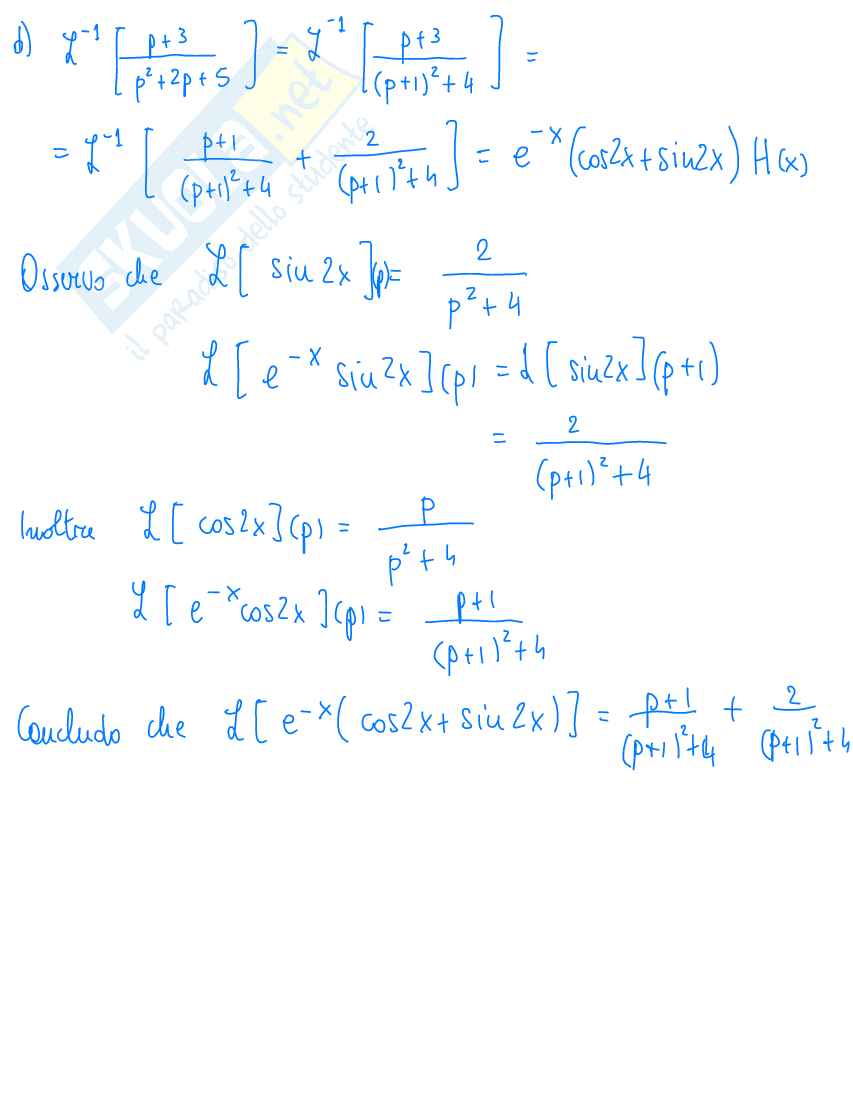 d) ℒ⁻¹ [ (p+3)/(p²+2p+5) ] = ℒ⁻¹ [ (p+3)/((p+1)²+4) ] =
= ℒ⁻¹ [ (p+1)/((p+1)²+4) + 2/((p+1)²+4) ] = e^(-x) (cos2x+sin2x) H(x)
SKUOLA.net
il paradiso dello studente
Osservo che ℒ[ sin 2x ](p) = 2/(p²+4)
ℒ[ e^(-x) sin2x ](p) = ℒ[ sin2x ](p+1)
= 2/((p+1)²+4)
Inoltre ℒ[ cos2x ](p) = p/(p²+4)
ℒ[ e^(-x) cos2x ](p) = (p+1)/((p+1)²+4)
Concludo che ℒ[ e^(-x) ( cos2x + sin 2x) ] = (p+1)/((p+1)²+4) + 2/((p+1)²+4)